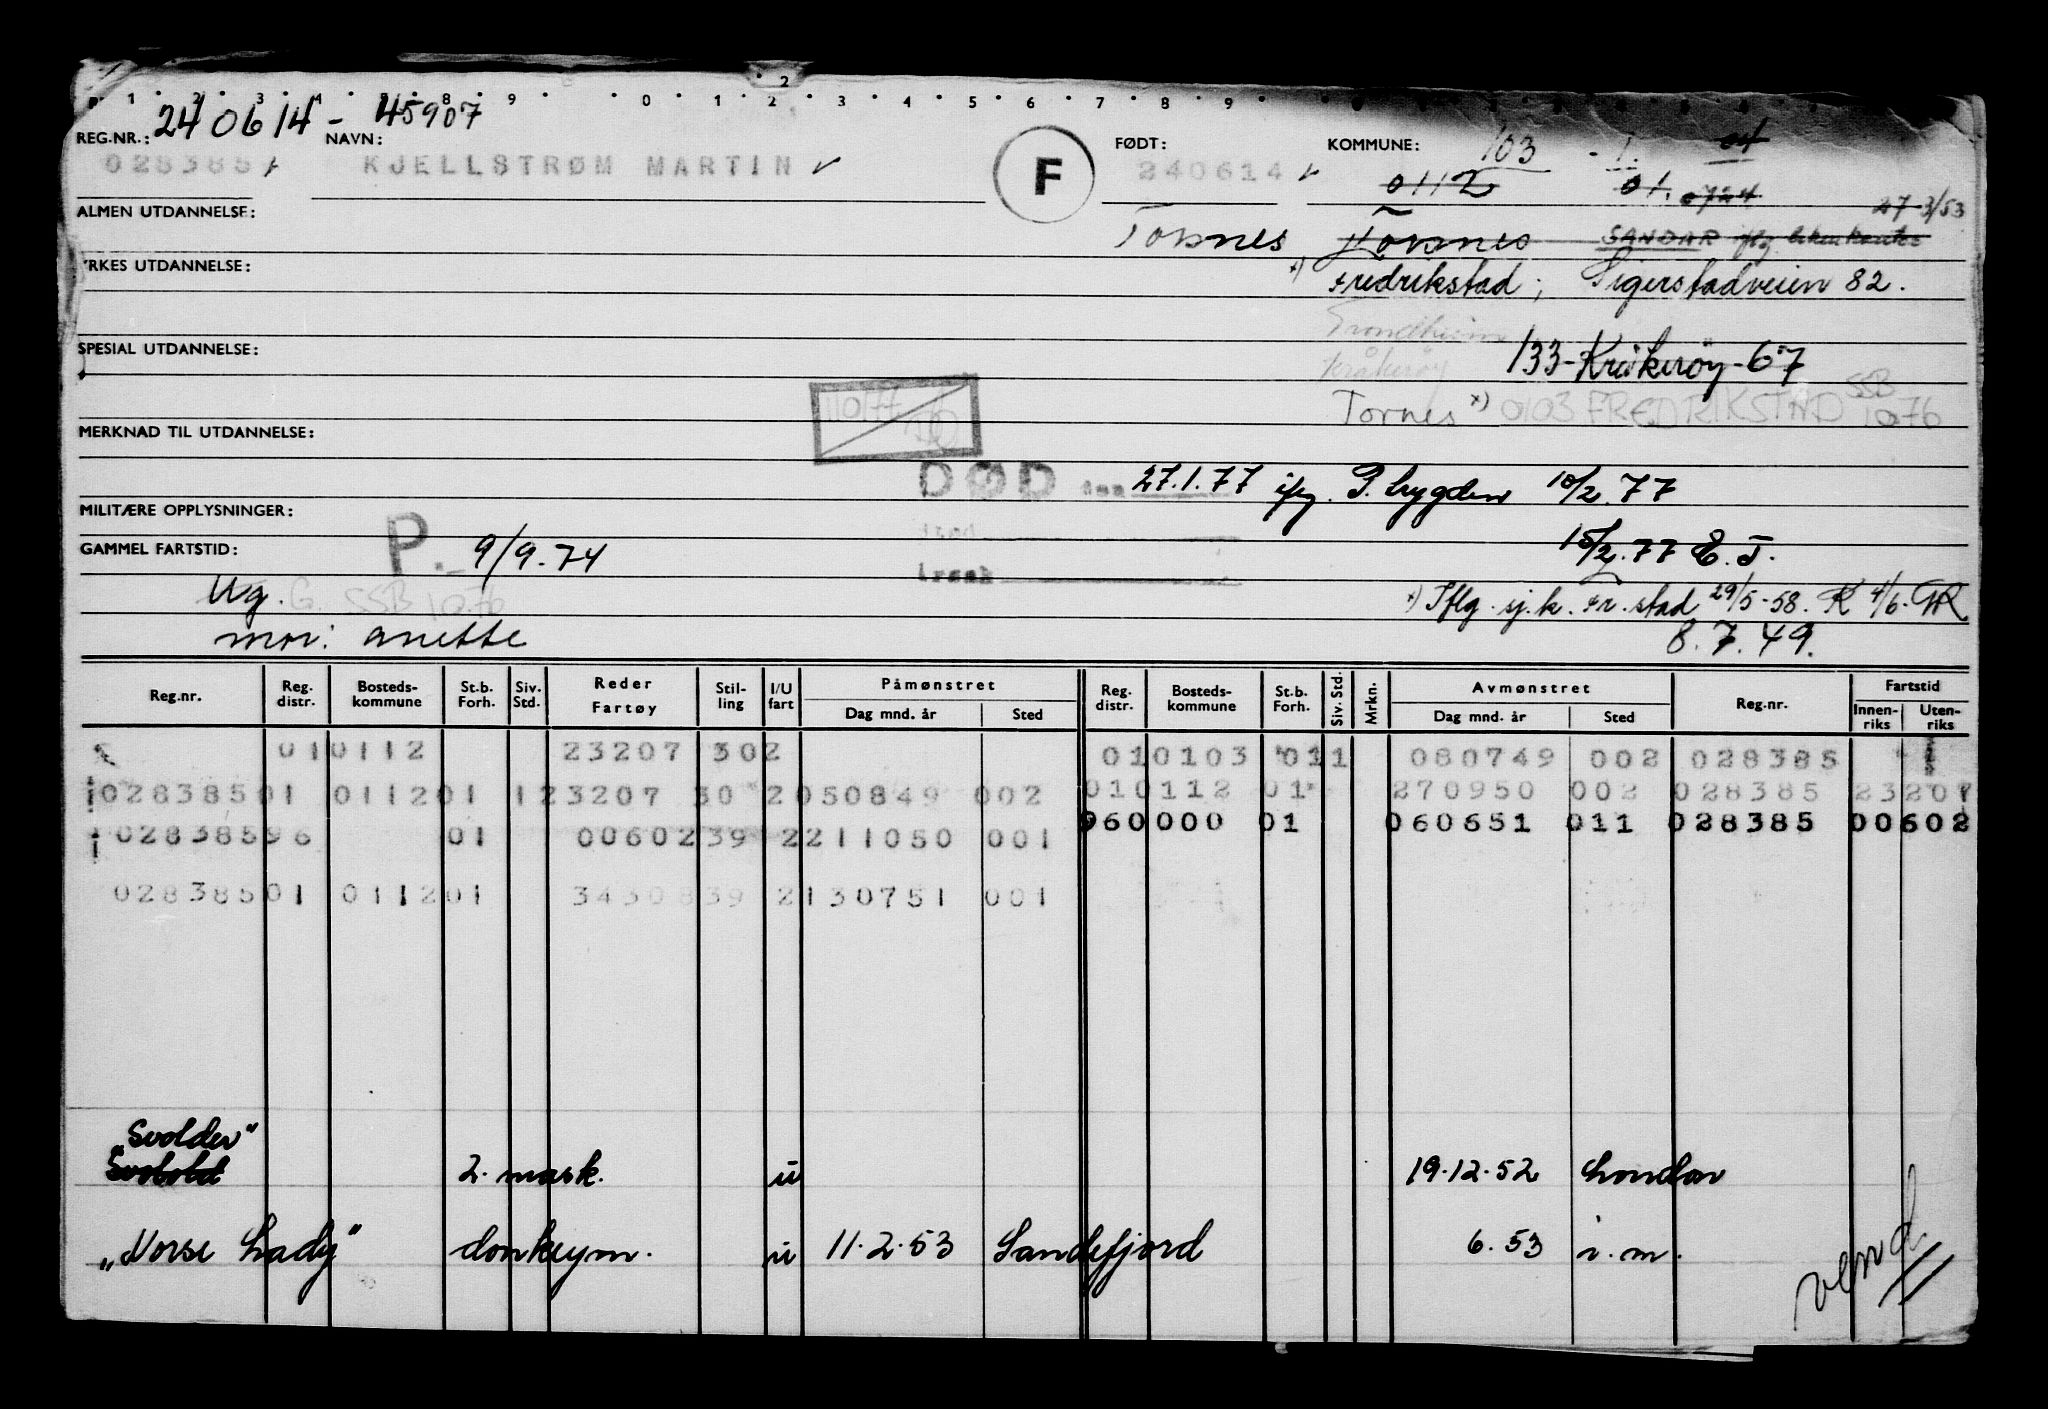 2
1 2 3 4 8 9 0 1 2 3 4 5 6 7 8 9
REG.NR.: 240614 - 45907 NAVN: FØDT: KOMMUNE: 103 - 1. 01
028385 KJELLSTRØM MARTIN F 240614 0112 01. 0724
ALMEN UTDANNELSE: 27 3/53
Torsnes Torsnes SANDAR iflg
YRKES UTDANNELSE: x) Fredrikstad; Sigerstadveien 82.
Trondheim
SPESIAL UTDANNELSE: Kråkerøy 133-Kråkerøy-67
Torsnes x) 0103 FREDRIKSTAD SSB 1076
MERKNAD TIL UTDANNELSE:
DØD den 27.1.77 iflg. P. trygden 10/2.77
MILITÆRE OPPLYSNINGER:
sted
GAMMEL FARTSTID: P. - 9/9.74 15/2.77 E.T.
årsak
Ug. G. SSB 1076 x) Iflg. sj.k. Fr.stad 29/5-58. R 4/6. GR
mor: anette 8.7.49.
Reg.nr. Reg. distr. Bosteds-kommune St.b. Forh. Siv. Std. Reder Fartøy Stil-ling I/U fart Påmønstret Dag mnd. år Sted Reg. distr. Bosteds-kommune St.b. Forh. Siv. Std. Mrkn. Avmønstret Dag mnd. år Sted Reg.nr. Fartstid Innen-riks Uten-riks
01 0112 23207 302 01 0103 01 1 080749 002 028385
028385 01 0112 01 1 23207 30 2 050849 002 01 0112 01 270950 002 028385 23207
028385 96 01 00602 39 2 211050 001 96 0000 01 060651 011 028385 00602
028385 01 0112 01 34308 39 2 130751 001
"Svolder"
Svobold 2. mask. u 19.12.52 London
"Norse Lady" donkeym. u 11.2.53 Sandefjord 6.53 i.m.
vend